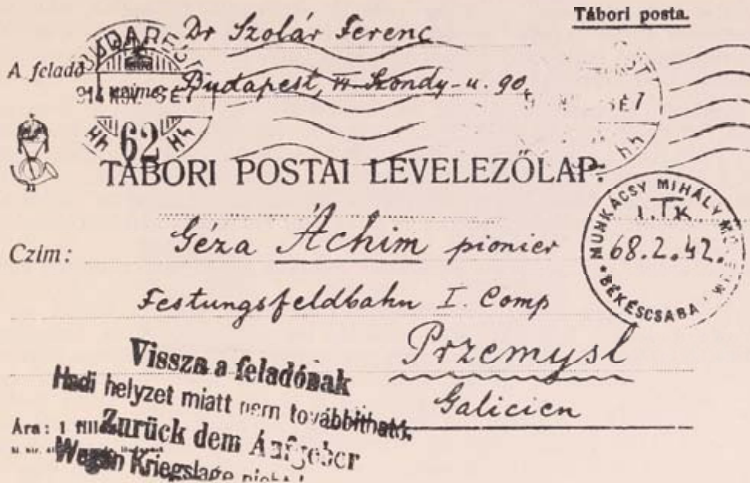 Tábori posta.
Dr Szolár Ferenc
A feladó
neime: Budapest, VI Szondy-u. 90.
BUDAPEST
914 NOV.
62
TÁBORI POSTAI LEVELEZŐLAP.
Czím: Géza Áchim pionier
Festungsfeldbahn I. Comp
Przemysl
Galicien
MUNKÁCSY MIHÁLY
I.TK
68.2.42.
BÉKÉSCSABA
Vissza a feladónak
Hadi helyzet miatt nem továbbitható.
Ára: 1 fillér
Zurück dem Aufgeber
Wegen Kriegslage